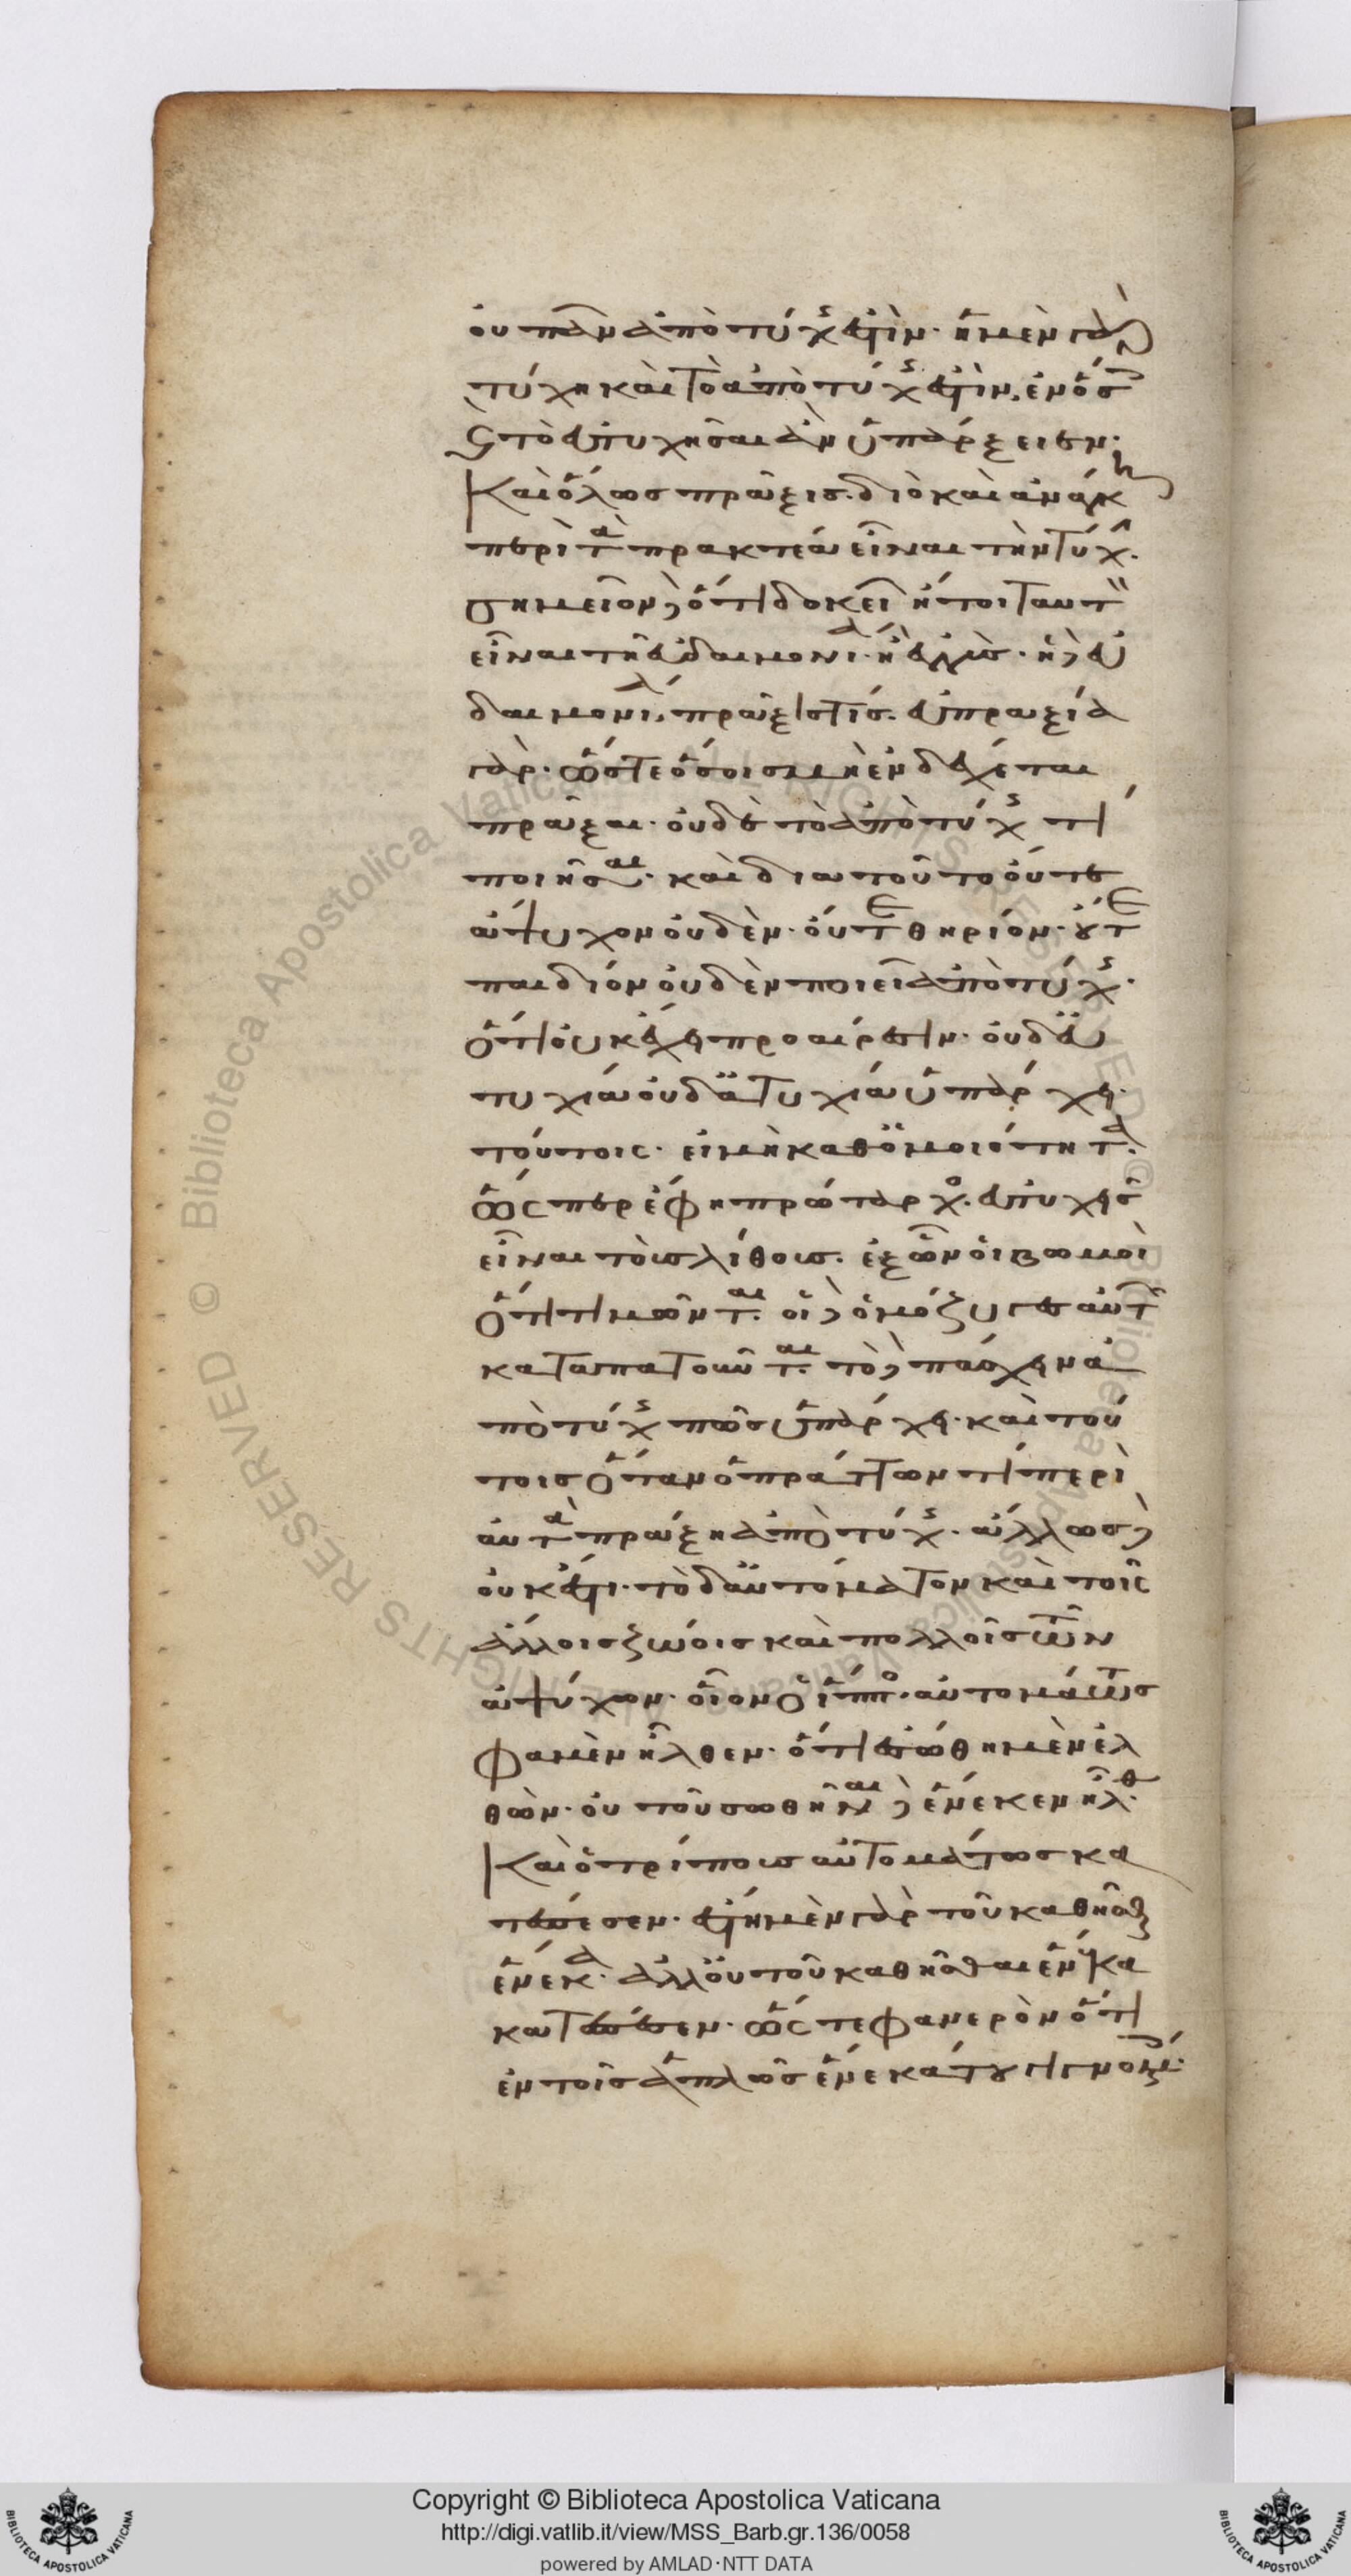 οὐ πᾶν ἀπὸ τύχης ἐστίν· ἡ μὲν γὰρ
τύχη καὶ τὸ ἀπὸ τύχης ἐστὶν, ἐν ὅσοις
καὶ τὸ εὐτυχῆσαι ἂν ὑπάρξειεν·
Καὶ ὅλως πρᾶξις. διὸ καὶ ἀνάγκη
περὶ τὰ πρακτέα εἶναι τὴν τύχην.
σημεῖον δὲ ὅτι δοκεῖ ἤτοι ταυτὸν
εἶναι τῇ εὐδαιμονίᾳ. ἢ ἐγγύς. ἡ δὲ εὐ
δαιμονία, πρᾶξίς τίς. εὐπραξία
γάρ. ὥστε ὅσοις μὴ ἐνδέχεται
πρᾶξαι. οὐδὲ τὸ ἀπὸ τύχης τί
ποιῆσαι. καὶ διατοῦτο οὔτε
ἄψυχον οὐδὲν. οὔτε θηρίον. οὔτε
παιδίον οὐδὲν ποιεῖ ἀπὸ τύχης.
ὅτι οὐκ ἔχει προαίρεσιν. οὐδ' εὐ
τυχία οὐδ' ἀτυχία ὑπάρχει
τούτοις. εἰ μὴ καθ' ὁμοιότητα.
ὥσπερ ἔφη πρώταρχος. εὐτυχεῖς
εἶναι τοὺς λίθους. ἐξ ὧν οἱ βωμοὶ
ὅτι τιμῶνται. οἱ δὲ ὁμόζυγες αὐτῶν
καταπατοῦνται. τὸ δὲ πάσχειν ἀ
πὸ τύχης πῶς ὑπάρχει. καὶ τού
τοις ὅταν ὁ πράττων τί περὶ
αὐτὰ πράξῃ ἀπὸ τύχης. ἄλλως δὲ
οὐκ ἔστι. τὸ δ' αὐτόματον καὶ τοῖς
ἄλλοις ζώοις καὶ πολλοῖς τῶν
ἀψύχων. οἷον ὁ ἵππος. αὐτομάτως
φαμὲν ἦλθεν. ὅτι ἐσώθη μὲν ἐλ
θών. οὐ τοῦ σωθῆναι δὲ ἕνεκεν ἦλθε.
Καὶ ὁ τρίπους αὐτομάτως κα
τέπεσεν. ἔστη μὲν γὰρ τοῦ καθῆσθαι
ἕνεκα. ἀλλ' οὐ τοῦ καθῆσθαι ἕνεκα
κατέπεσεν. ὥστε φανερὸν ὅτι
ἐν τοῖς ἁπλῶς ἕνεκά του γιγνομένοις.